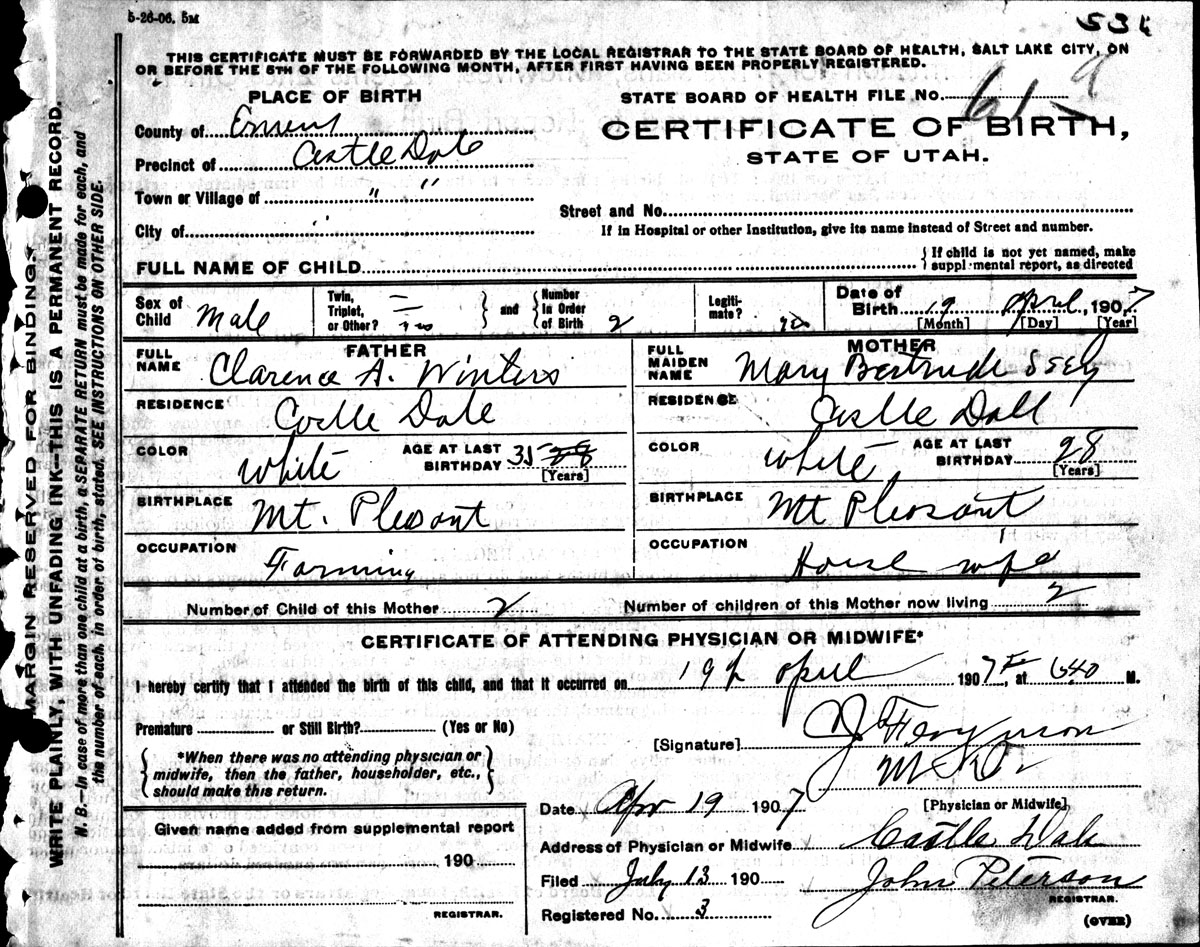 5-26-06. 5M
THIS CERTIFICATE MUST BE FORWARDED BY THE LOCAL REGISTRAR TO THE STATE BOARD OF HEALTH, SALT LAKE CITY, ON
OR BEFORE THE 5TH OF THE FOLLOWING MONTH, AFTER FIRST HAVING BEEN PROPERLY REGISTERED.
PLACE OF BIRTH
STATE BOARD OF HEALTH FILE NO.
County of
CERTIFICATE OF BIRTH,
STATE OF UTAH.
Precinct of Castle Dale
Town or Village of " "
Street and No.
City of "
If in Hospital or other Institution, give its name instead of Street and number.
FULL NAME OF CHILD
{ If child is not yet named, make
supplemental report, as directed
Sex of Child Male
Twin, Triplet, or Other? } and { Number in Order of Birth 2
Legitimate?
Date of Birth 19 April, 1907
[Month] [Day] [Year]
FATHER
FULL NAME Clarence A. Winters
RESIDENCE Castle Dale
COLOR White AGE AT LAST BIRTHDAY 35 28
[Years]
BIRTHPLACE Mt. Pleasant
OCCUPATION Farming
MOTHER
FULL MAIDEN NAME Mary Bertrude Seely
RESIDENCE Castle Dale
COLOR White AGE AT LAST BIRTHDAY 28
[Years]
BIRTHPLACE Mt Pleasant
OCCUPATION House wife
Number of Child of this Mother 2 Number of children of this Mother now living 2
CERTIFICATE OF ATTENDING PHYSICIAN OR MIDWIFE*
I hereby certify that I attended the birth of this child, and that it occurred on 19th April 1907, at 640 M.
Premature or Still Birth? (Yes or No)
[Signature]
{ *When there was no attending physician or
midwife, then the father, householder, etc.,
should make this return. }
Date Apr 19 1907 [Physician or Midwife]
Given name added from supplemental report
190
REGISTRAR.
Address of Physician or Midwife Castle Dale
Filed July 13 190 John Peterson
REGISTRAR.
Registered No. 3
(OVER)
MARGIN RESERVED FOR BINDING.
WRITE PLAINLY, WITH UNFADING INK—THIS IS A PERMANENT RECORD.
N. B.—In case of more than one child at a birth, a SEPARATE RETURN must be made for each, and
the number of each, in order of birth, stated. SEE INSTRUCTIONS ON OTHER SIDE.